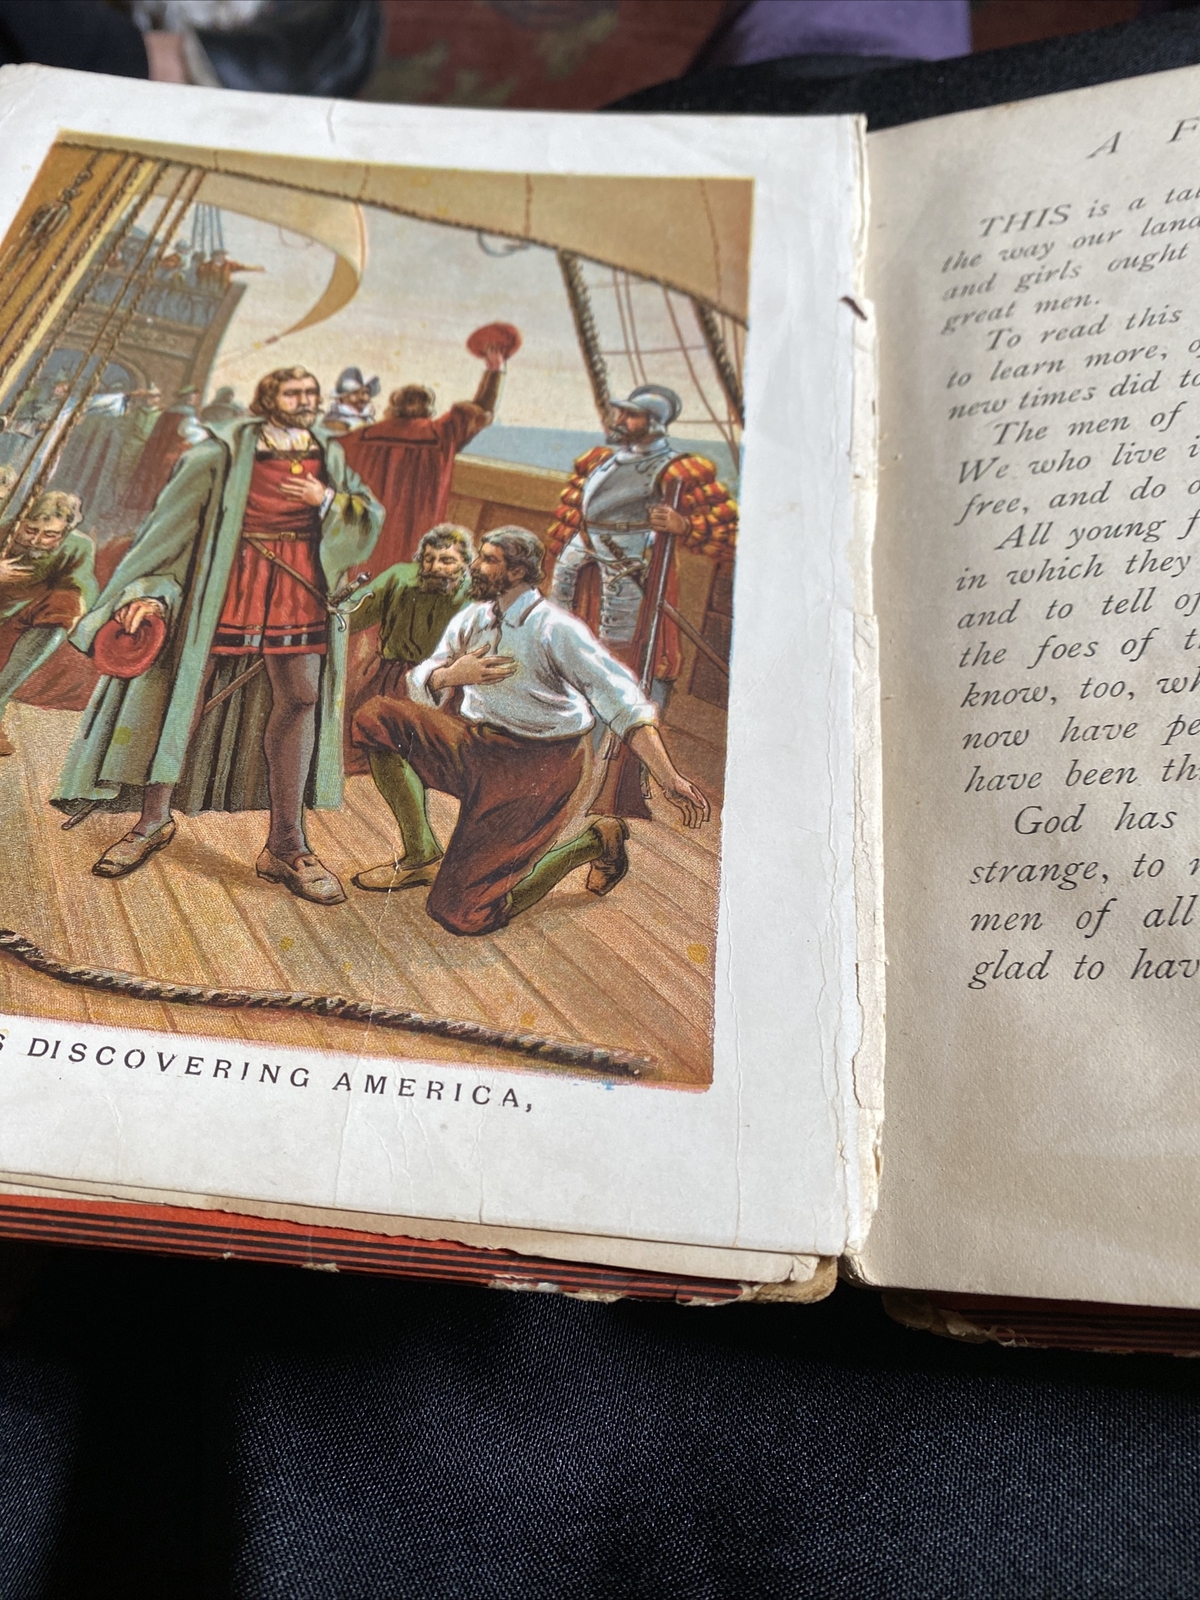 S DISCOVERING AMERICA,
A F
THIS is a tal
the way our land
and girls ought
great men.
To read this
to learn more, o
new times did to
The men of
We who live i
free, and do o
All young f
in which they
and to tell of
the foes of t
know, too, wh
now have pe
have been th
God has
strange, to
men of all
glad to hav